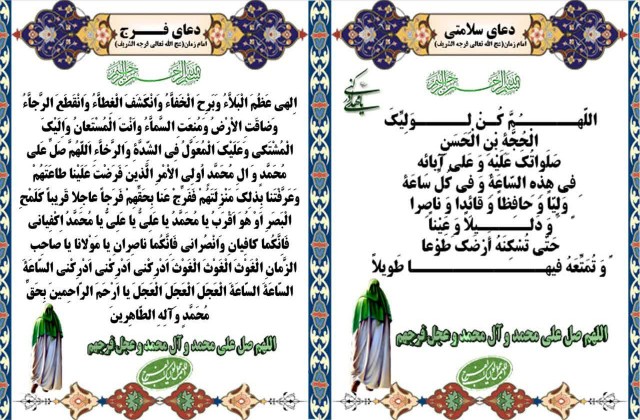 دعای سلامتی
امام زمان(عج الله تعالی فرجه الشریف)
بسم الله الرحمن الرحیم
اللّهُمَّ کُن لِوَلیِّکَ
الْحُجَّهِ بْنِ الْحَسَنِ
صَلَواتُکَ عَلَیْهَ وَ عَلی آبائِه
فِی هذِه السّاعَةِ وَ فی کُلِّ ساعَةٍ
وَلِیّا وَ حافِظاً وَ قائِدا وَ ناصِرا
وَ دَلیلاً وَ عَیْناً
حَتّی تُسْکِنَهُ أَرْضَکَ طَوْعا
وَ تُمَتِّعَهُ فیها طَویلاً
اللهم صل علی محمد و آل محمد و عجل فرجهم
دعای فرج
امام زمان(عج الله تعالی فرجه الشریف)
بسم الله الرحمن الرحیم
اِلهی عَظُمَ الْبَلاَّءُ وَبَرِحَ الْخَفاَّءُ وَانْکَشَفَ الْغِطاَّءُ وَانْقَطَعَ الرَّجاَّءُ
وَضاقَتِ الاَْرْضُ وَمُنِعَتِ السَّماَّءُ وَاَنْتَ الْمُسْتَعانُ وَاِلَیْکَ
الْمُشْتَکی وَعَلَیْکَ الْمُعَوَّلُ فِی الشِّدَّةِ وَالرَّخاَّءِ اَللّهُمَّ صَلِّ عَلی
مُحَمَّدٍ وَ الِ مُحَمَّدٍ اُولِی الاَْمْرِ الَّذینَ فَرَضْتَ عَلَیْنا طاعَتَهُمْ
وَعَرَّفْتَنا بِذلِکَ مَنْزِلَتَهُمْ فَفَرِّجْ عَنا بِحَقِّهِمْ فَرَجاً عاجِلا قَریباً کَلَمْحِ
الْبَصَرِ اَوْ هُوَ اَقْرَبُ یا مُحَمَّدُ یا عَلِیُّ یا عَلِیُّ یا مُحَمَّدُ اِکْفِیانی
فَاِنَّکُما کافِیانِ وَانْصُرانی فَاِنَّکُما ناصِرانِ یا مَوْلانا یا صاحِبَ
الزَّمانِ الْغَوْثَ الْغَوْثَ الْغَوْثَ اَدْرِکْنی اَدْرِکْنی اَدْرِکْنی السّاعَةَ
السّاعَةَ السّاعَةَ الْعَجَلَ الْعَجَلَ الْعَجَلَ یا اَرْحَمَ الرّاحِمینَ بِحَقِّ
مُحَمَّدٍ وَآلِهِ الطّاهِرینَ
اللهم صل علی محمد و آل محمد و عجل فرجهم